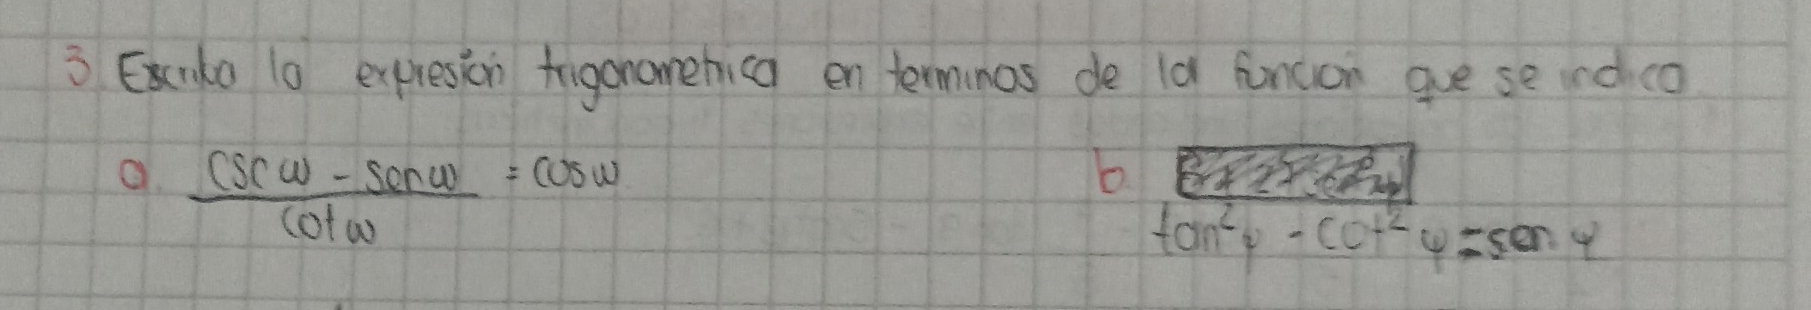 3 Escriba la expresión trigonometrica en terminos de la función que se indica
a. (csc w - sen w) / cot w = cos w
b.
tan² ψ - cot² ψ = sen ψ